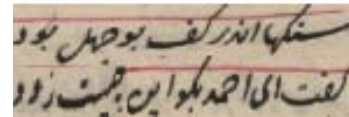 سنکها اندر کف بوجهل بود
کفت ای احمد بکو این چیست زود